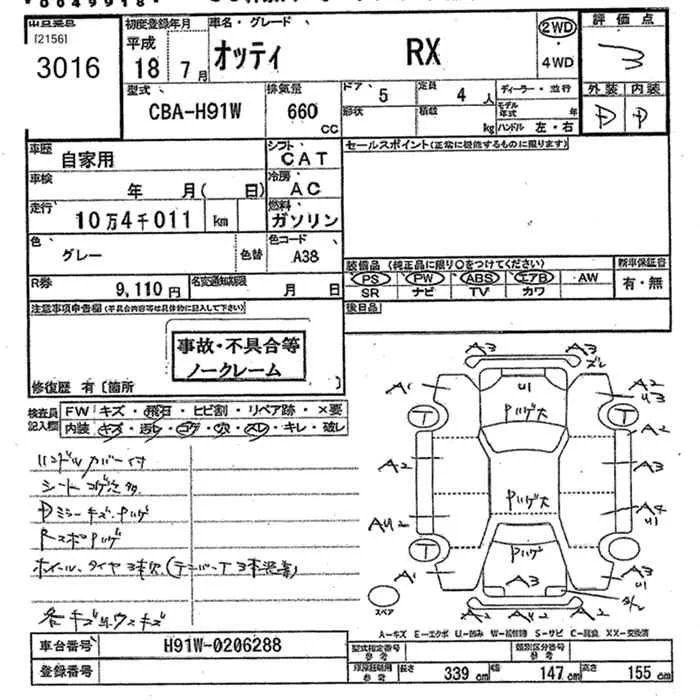 0049918
[2156]
3016
初度登録年月
平成
18年 7月
車名・グレード
オッティ RX
2WD
・
4WD
評価点
3
外装 内装
D D
型式
CBA-H91W
排気量
660 cc
ドア・
5
形状
定員
4 人
積載
kg
ディーラー・並行
モデル年式 年
ハンドル 左・右
車歴
自家用
シフト・
CAT
セールスポイント(正常に機能するものに限ります)
車検
年 月( 日)
冷房・
AC
走行
10万4千011 km
燃料・
ガソリン
色・
グレー
色替
色コード
A38
装備品 (純正品に限り○をつけてください)
新車保証書
PS PW ABS エアB AW
有・無
SR ナビ TV カワ
R券
9,110円
名変通知期限
月 日
後日品
注意事項申告欄(不具合内容等は具体的に記入して下さい)
事故・不具合等
ノークレーム
修復歴 有〔箇所
検査員記入欄
FW キズ・飛石・ヒビ割・リペア跡・×要
内装 キズ・汚レ・コゲ・穴・スレ・キレ・破レ
ハンドルカバー付
シートコゲ穴多
DミラーキズPハゲ
RスポPハゲ
ホイール、タイヤ3本欠(テンパーT3本装着)
各キズ、ウスキズ
A3 A3
ズレ
A1 U1 A2
U3
T Pハゲ大 T
A2
A2 A3
Pハゲ大
AU2 A4
U1
T Pハゲ
A1 A3 A3
U1
スペア
A2 A2
A-キズ E-エクボ U-凹み W-補修跡 S-サビ C-腐食 XX-交換済
車台番号
H91W-0206288
型式指定番号
参考
類別区分番号
参考
登録番号
車庫証明用
参考
長さ
339 cm
幅
147 cm
高さ
155 cm